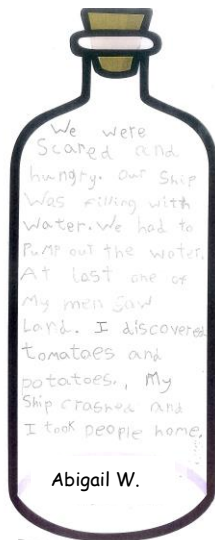 We were
Scared and
hungry. Our Ship
Was filling with
water. We had to
Pump out the water.
At last one of
My men saw
Land. I discovered
tomatoes and
potatoes., My
Ship crashed and
I took people home.
Abigail W.